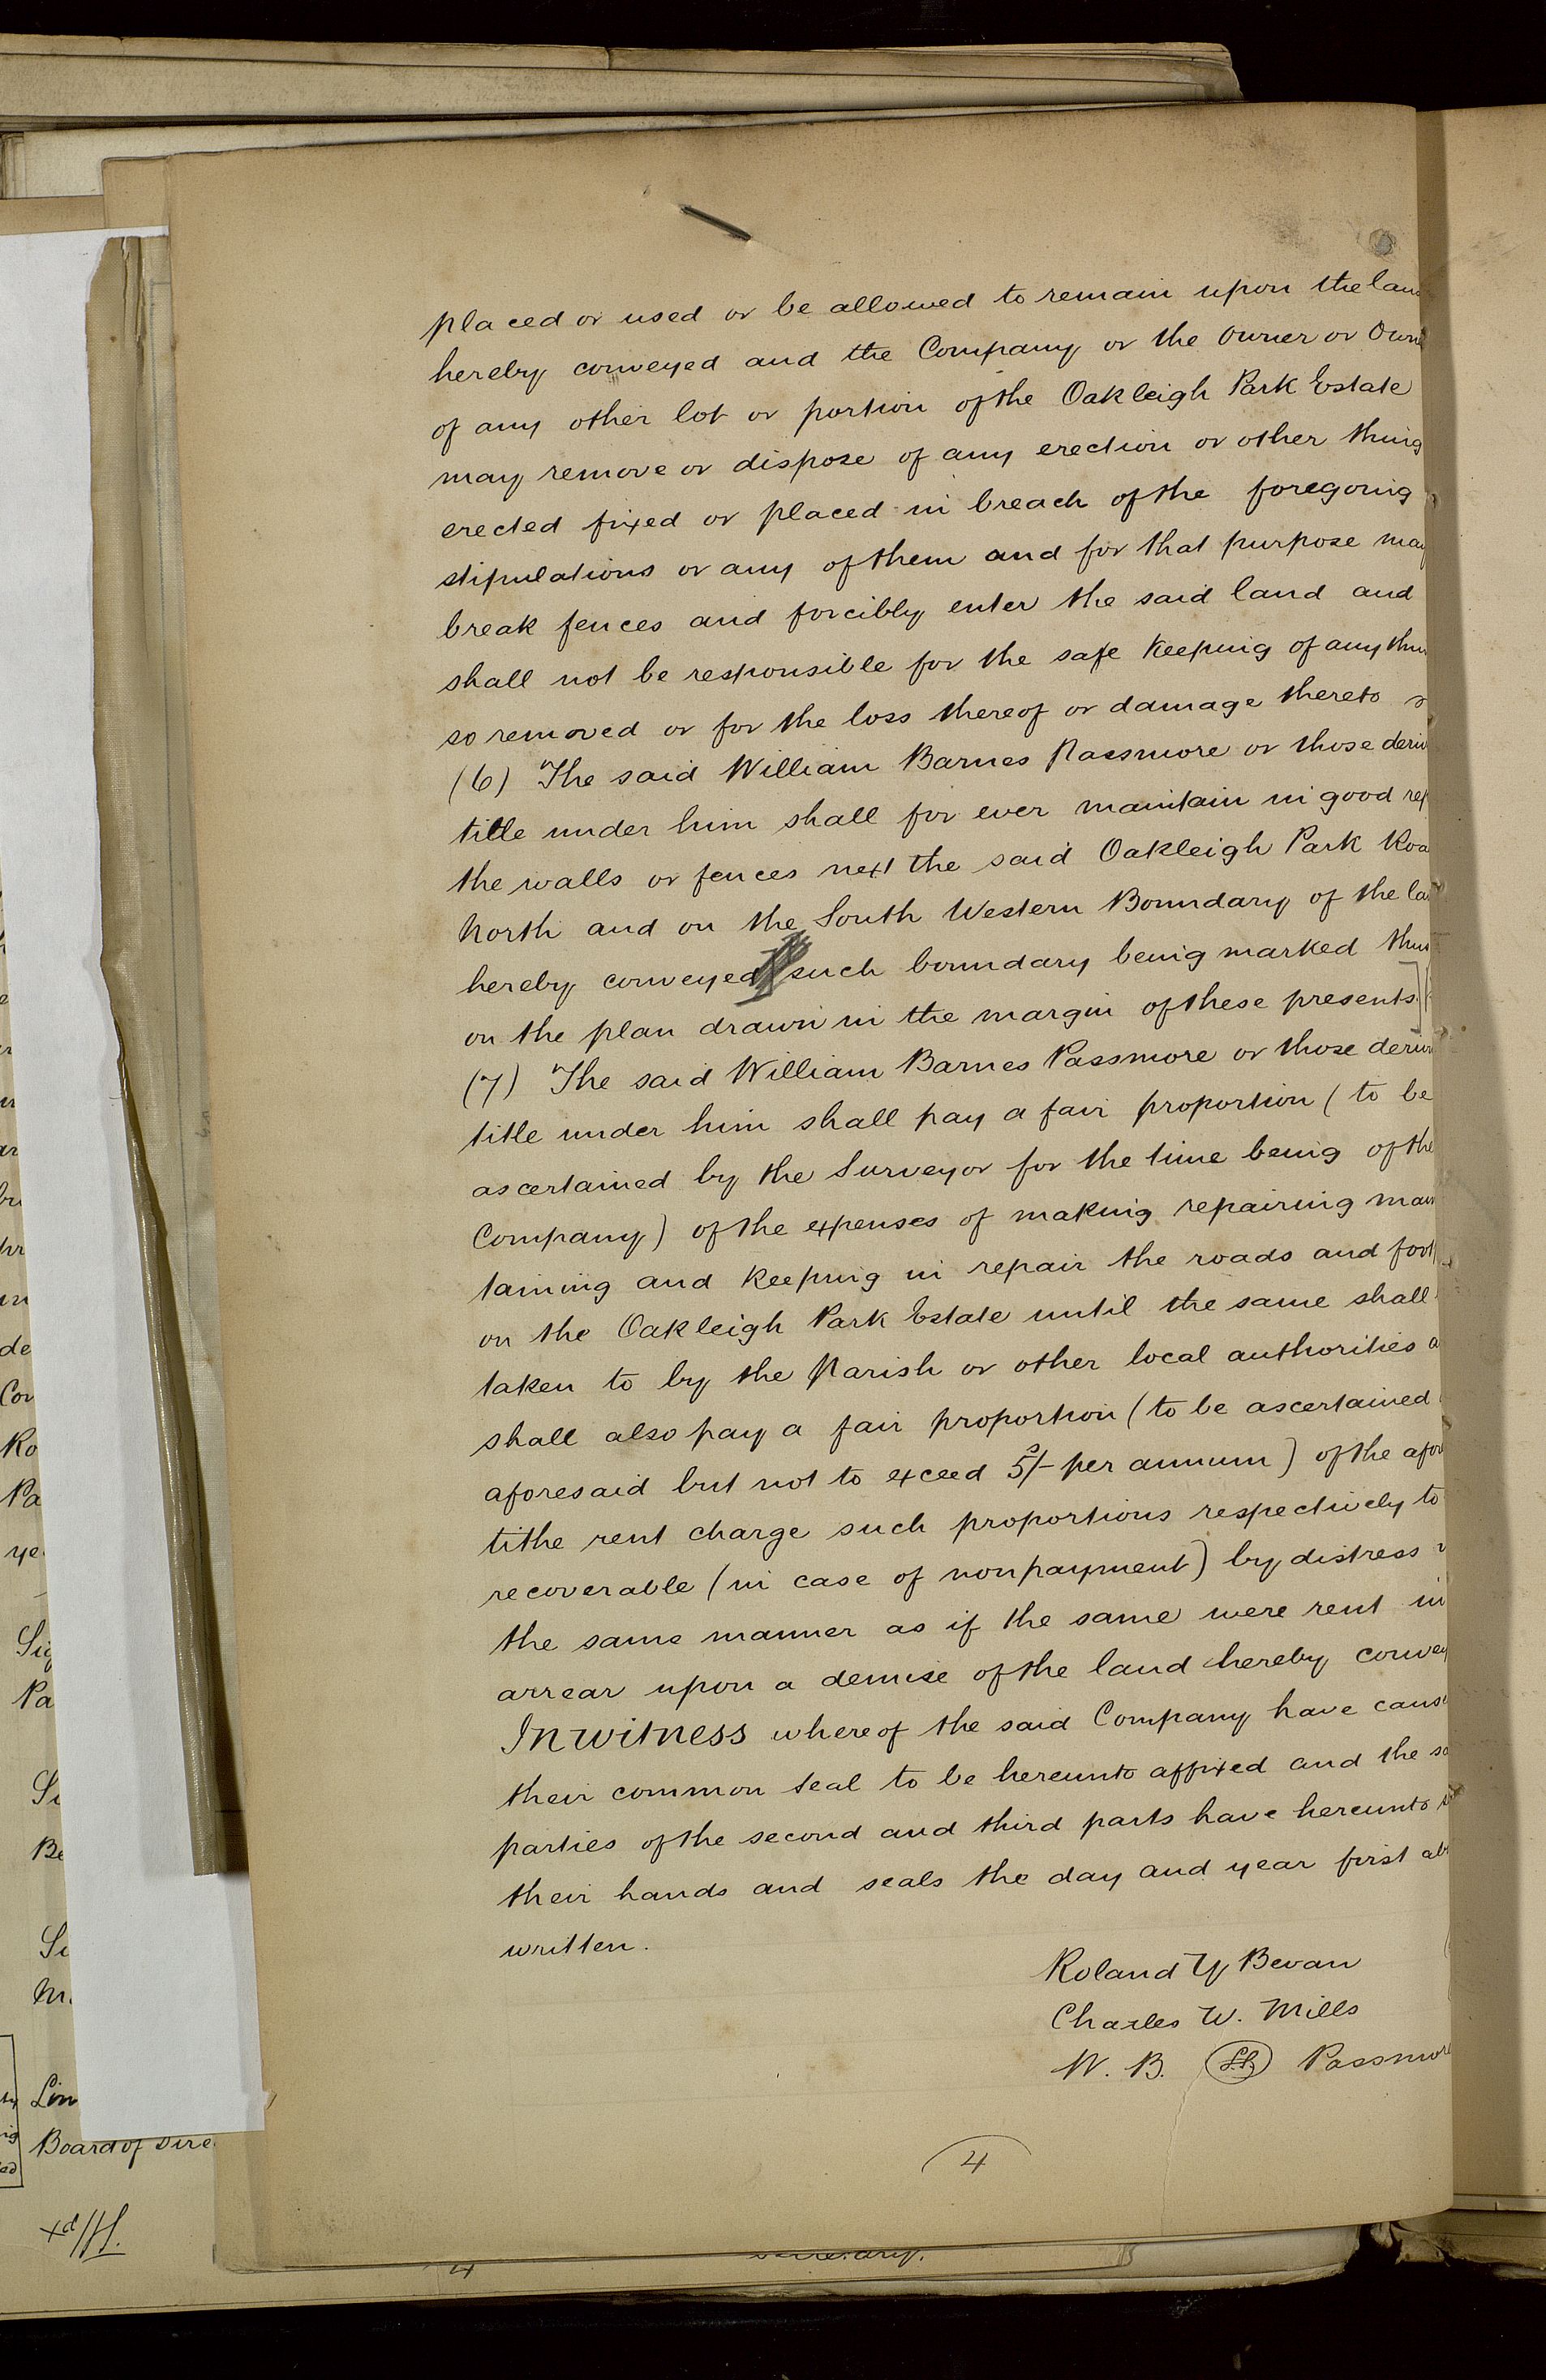 placed or used or be allowed to remain upon the lan
hereby conveyed and the Company or the owner or Own
of any other lot or portion of the Oakleigh Park Estate
may remove or dispose of any erection or other thing
erected fixed or placed in breach of the foregoing
stipulations or any of them and for that purpose may
break fences and forcibly enter the said land and
shall not be responsible for the safe keeping of any thin
so removed or for the loss thereof or damage thereto
(6) The said William Barnes Passmore or those deriv
title under him shall for ever maintain in good rep
the walls or fences next the said Oakleigh Park Roa
North and on the South Western Boundary of the la
hereby conveyed such boundary being marked thus
on the plan drawn in the margin of these presents
(7) The said William Barnes Passmore or those deriv
title under him shall pay a fair proportion (to be
ascertained by the Surveyor for the time being of the
Company) of the expenses of making repairing main
taining and keeping in repair the roads and foot
on the Oakleigh Park Estate until the same shall
taken to by the Parish or other local authorities a
shall also pay a fair proportion (to be ascertained
aforesaid but not to exceed 5s/- per annum) of the afor
tithe rent charge such proportions respectively to
recoverable (in case of nonpayment) by distress
the same manner as if the same were rent in
arrear upon a demise of the land hereby convey
In witness whereof the said Company have caus
their common seal to be hereunto affixed and the sa
parties of the second and third parts have hereunto s
their hands and seals the day and year first ab
written.
Roland Y Bevan
Charles W. Mills
W. B. L.S. Passmore
4
de
Cor
Ro
Pa
ye
Sig
Pa
Be
Lon
Board of Dire
xd/H.
4
secretary.